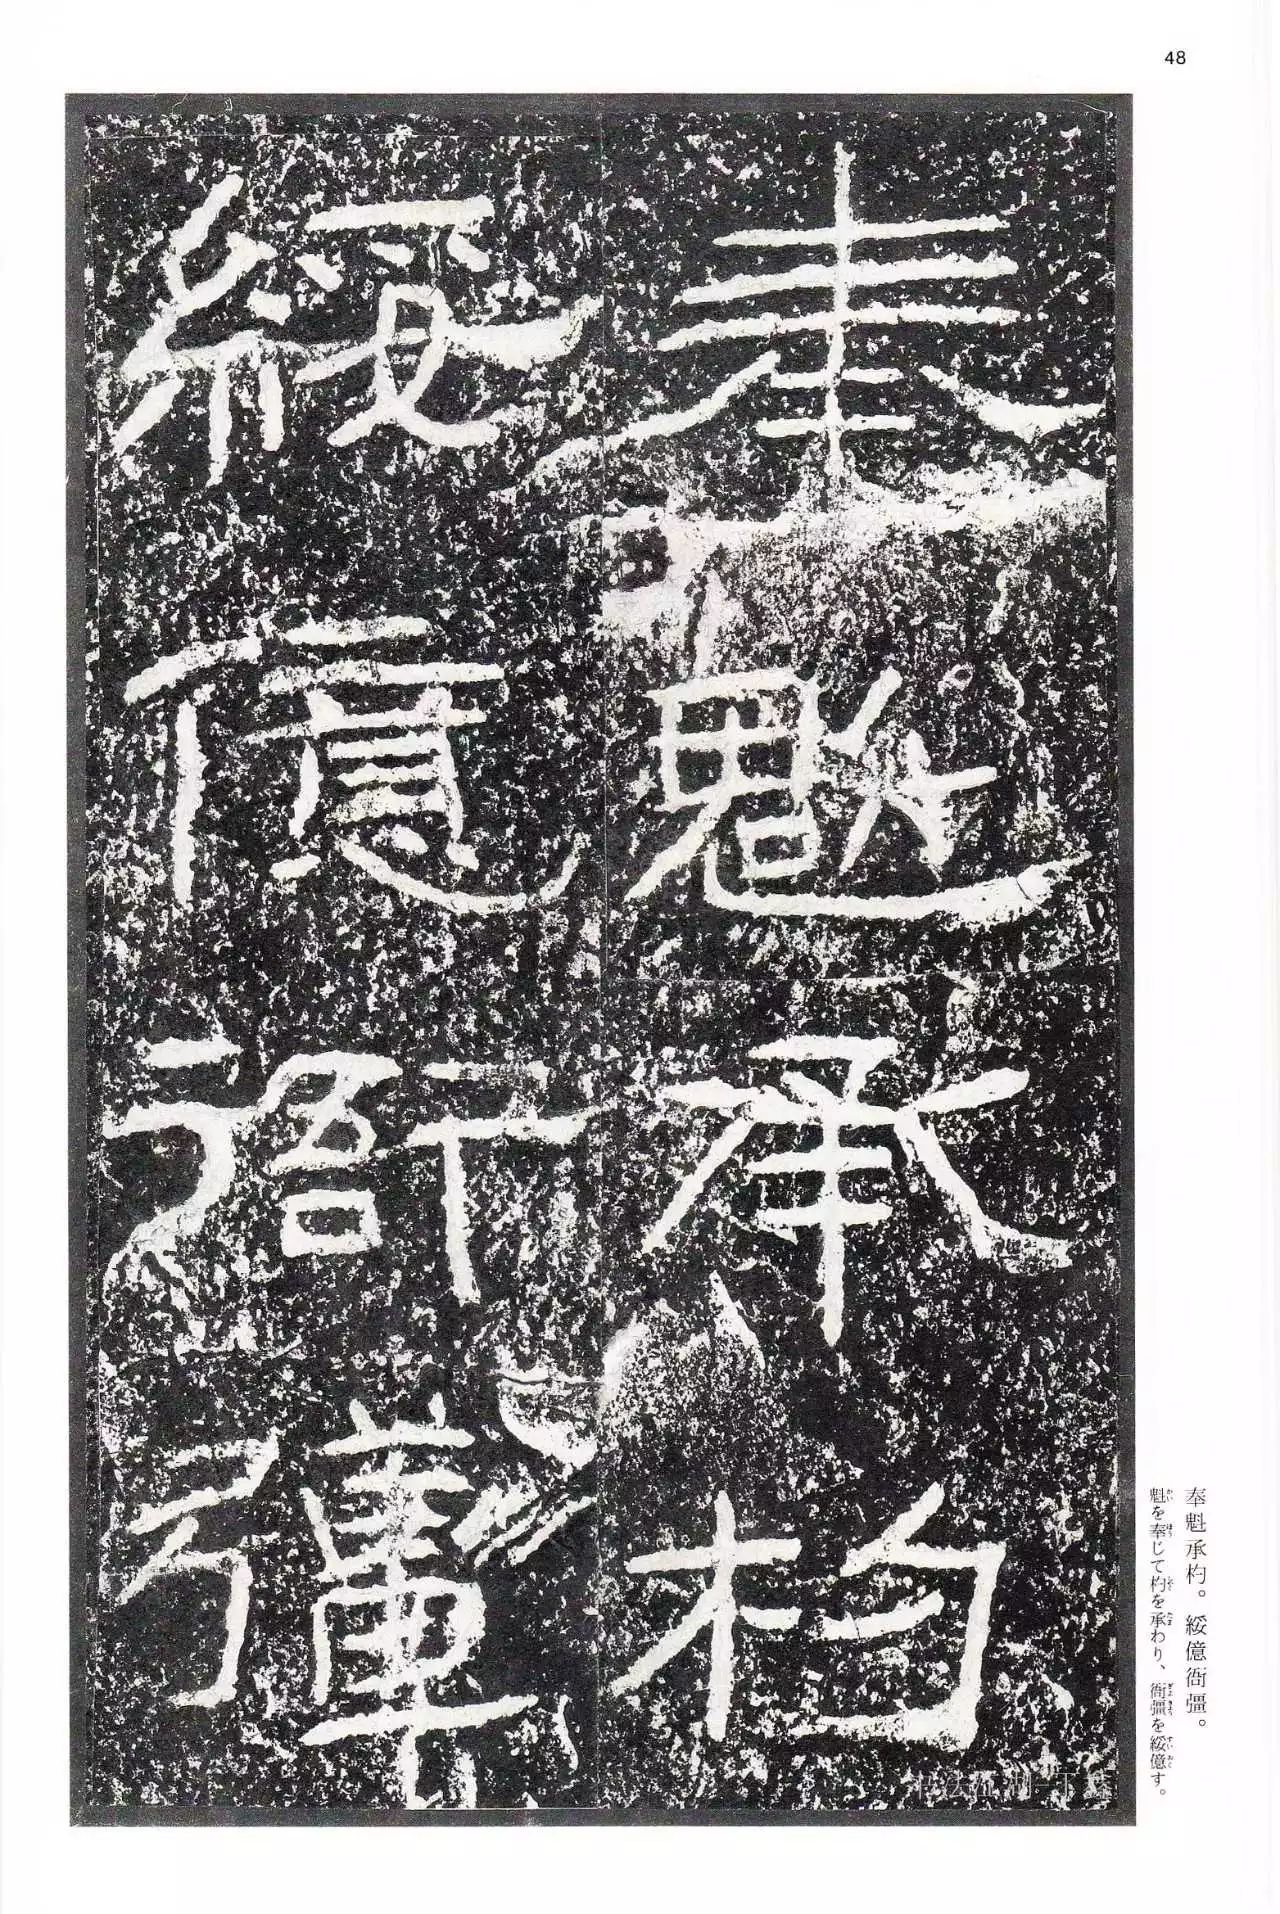 48
奉魁承杓
綏億衙彊
奉魁承杓。綏億衙彊。
魁を奉じて杓を承わり、衙彊を綏億す。